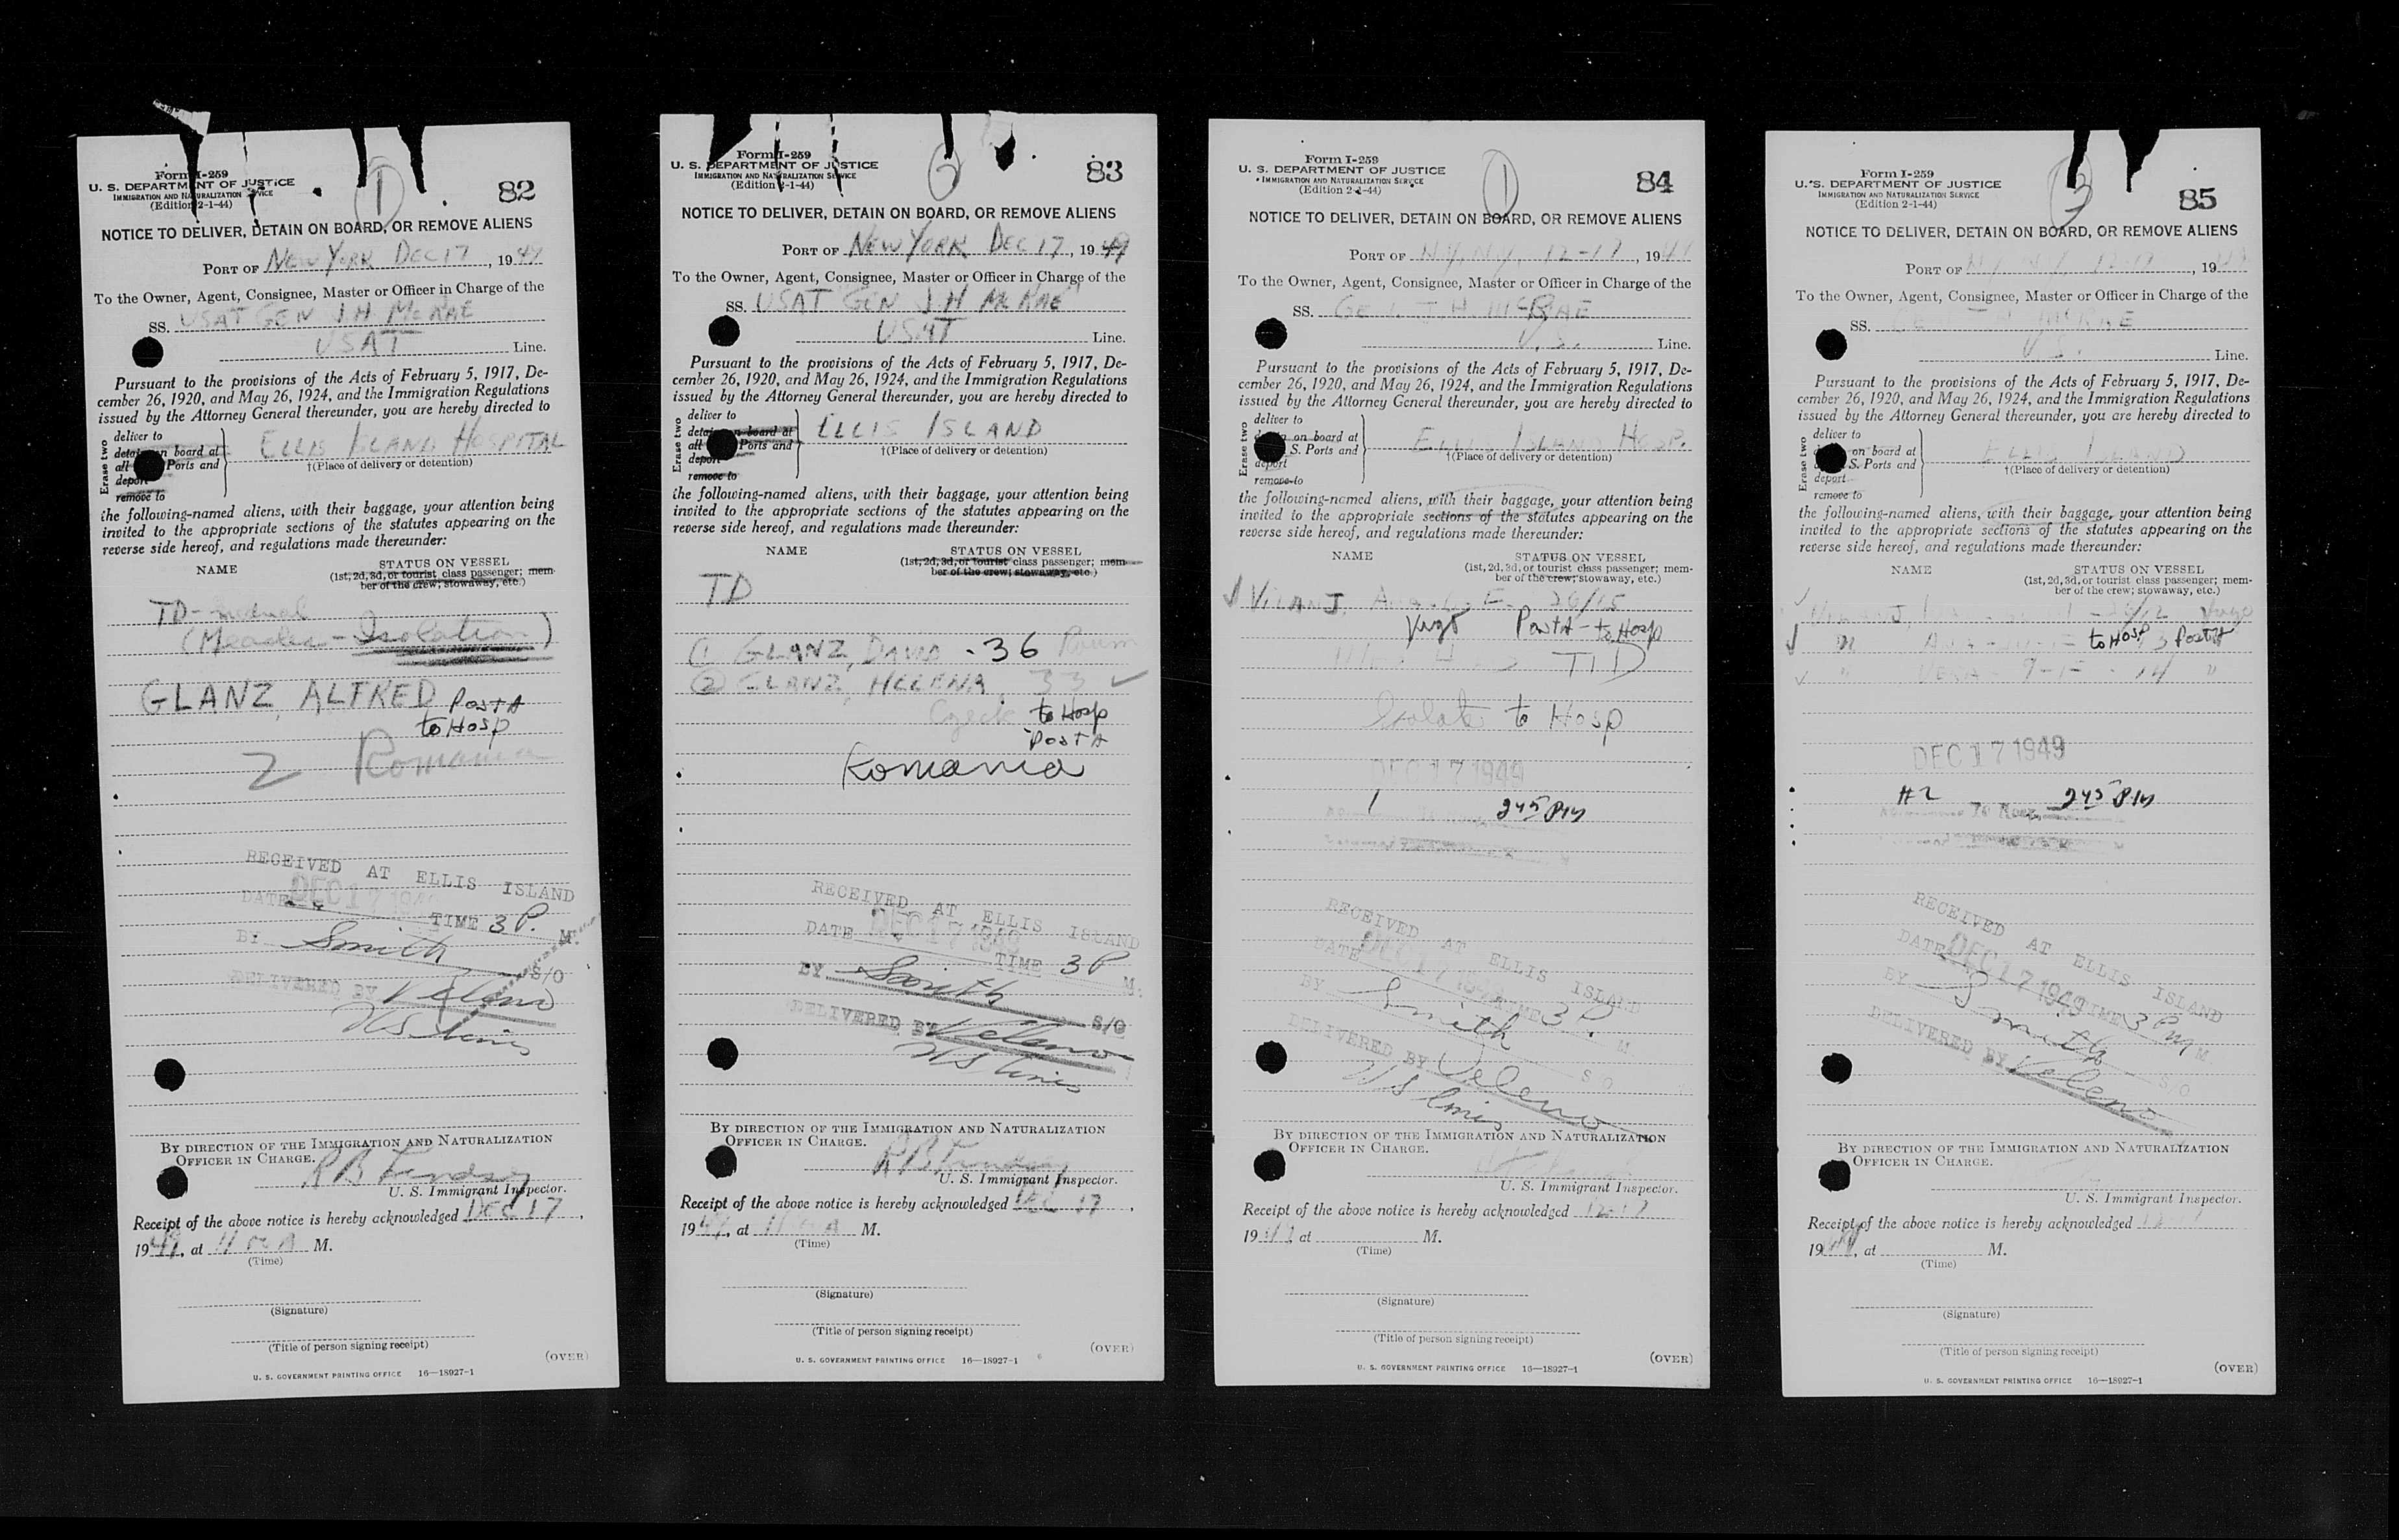 Form I-259
U. S. DEPARTMENT OF JUSTICE
IMMIGRATION AND NATURALIZATION SERVICE
(Edition 2-1-44)
1
82
NOTICE TO DELIVER, DETAIN ON BOARD, OR REMOVE ALIENS
PORT OF NEW YORK DEC 17, 1949
To the Owner, Agent, Consignee, Master or Officer in Charge of the
SS. USAT GEN J H McRAE
USAT Line.
Pursuant to the provisions of the Acts of February 5, 1917, De-
cember 26, 1920, and May 26, 1924, and the Immigration Regulations
issued by the Attorney General thereunder, you are hereby directed to
Erase two
deliver to
detain on board at
all Ports and
deport
remove to
ELLIS ISLAND HOSPITAL
†(Place of delivery or detention)
the following-named aliens, with their baggage, your attention being
invited to the appropriate sections of the statutes appearing on the
reverse side hereof, and regulations made thereunder:
NAME
STATUS ON VESSEL
(1st, 2d, 3d, or tourist class passenger; mem-
ber of the crew; stowaway, etc.)
TD-
(Measles - Isolation)
GLANZ, ALFRED Post A
to Hosp
2 Romania
RECEIVED AT ELLIS ISLAND
DATE DEC 17 1949 TIME 3 P. M.
BY Smith S/O
DELIVERED BY Veleno
US Lines
BY DIRECTION OF THE IMMIGRATION AND NATURALIZATION
OFFICER IN CHARGE.
U. S. Immigrant Inspector.
Receipt of the above notice is hereby acknowledged DEC 17,
1949, at 11 00 A M.
(Time)
(Signature)
(Title of person signing receipt)
(OVER)
U. S. GOVERNMENT PRINTING OFFICE 16—18927-1
Form I-259
U. S. DEPARTMENT OF JUSTICE
IMMIGRATION AND NATURALIZATION SERVICE
(Edition 2-1-44)
2
83
NOTICE TO DELIVER, DETAIN ON BOARD, OR REMOVE ALIENS
PORT OF NEW YORK DEC 17, 1949
To the Owner, Agent, Consignee, Master or Officer in Charge of the
SS. USAT GEN J H McRAE
USAT Line.
Pursuant to the provisions of the Acts of February 5, 1917, De-
cember 26, 1920, and May 26, 1924, and the Immigration Regulations
issued by the Attorney General thereunder, you are hereby directed to
Erase two
deliver to
detain on board at
all Ports and
deport
remove to
ELLIS ISLAND
†(Place of delivery or detention)
the following-named aliens, with their baggage, your attention being
invited to the appropriate sections of the statutes appearing on the
reverse side hereof, and regulations made thereunder:
NAME
STATUS ON VESSEL
(1st, 2d, 3d, or tourist class passenger; mem-
ber of the crew; stowaway, etc.)
TD
(1) GLANZ, DAVID - 36 Roum
(2) GLANZ, HELENA, 33 ✓
Czech to Hosp
Post A
Romania
RECEIVED AT ELLIS ISLAND
DATE DEC 17 1949 TIME 3 P M.
BY Smith S/O
DELIVERED BY Veleno
US Lines
BY DIRECTION OF THE IMMIGRATION AND NATURALIZATION
OFFICER IN CHARGE.
U. S. Immigrant Inspector.
Receipt of the above notice is hereby acknowledged DEC 17,
1949, at 11 00 A M.
(Time)
(Signature)
(Title of person signing receipt)
(OVER)
U. S. GOVERNMENT PRINTING OFFICE 16—18927-1
Form I-259
U. S. DEPARTMENT OF JUSTICE
IMMIGRATION AND NATURALIZATION SERVICE
(Edition 2-1-44)
1
84
NOTICE TO DELIVER, DETAIN ON BOARD, OR REMOVE ALIENS
PORT OF N.Y. N.Y. 12-17, 1949
To the Owner, Agent, Consignee, Master or Officer in Charge of the
SS. GEN J H McRAE
U.S. Line.
Pursuant to the provisions of the Acts of February 5, 1917, De-
cember 26, 1920, and May 26, 1924, and the Immigration Regulations
issued by the Attorney General thereunder, you are hereby directed to
Erase two
deliver to
on board at
S. Ports and
deport
remove to
ELLIS ISLAND HOSP.
†(Place of delivery or detention)
the following-named aliens, with their baggage, your attention being
invited to the appropriate sections of the statutes appearing on the
reverse side hereof, and regulations made thereunder:
NAME
STATUS ON VESSEL
(1st, 2d, 3d, or tourist class passenger; mem-
ber of the crew; stowaway, etc.)
✓ 26/15
Yugo Post A - to Hosp
TD
Isolate to Hosp
DEC 17 1949
1 245 PM
RECEIVED AT ELLIS ISLAND
DATE DEC 17 1949 TIME 3 P. M.
BY Smith S/O
DELIVERED BY Veleno
US Lines
BY DIRECTION OF THE IMMIGRATION AND NATURALIZATION
OFFICER IN CHARGE.
U. S. Immigrant Inspector.
Receipt of the above notice is hereby acknowledged 12-17
1949, at M.
(Time)
(Signature)
(Title of person signing receipt)
(OVER)
U. S. GOVERNMENT PRINTING OFFICE 16—18927-1
Form I-259
U. S. DEPARTMENT OF JUSTICE
IMMIGRATION AND NATURALIZATION SERVICE
(Edition 2-1-44)
85
NOTICE TO DELIVER, DETAIN ON BOARD, OR REMOVE ALIENS
PORT OF N.Y. N.Y. 12-17, 1949
To the Owner, Agent, Consignee, Master or Officer in Charge of the
SS. GEN J H McRAE
U.S. Line.
Pursuant to the provisions of the Acts of February 5, 1917, De-
cember 26, 1920, and May 26, 1924, and the Immigration Regulations
issued by the Attorney General thereunder, you are hereby directed to
Erase two
deliver to
on board at
S. Ports and
deport
remove to
ELLIS ISLAND
†(Place of delivery or detention)
the following-named aliens, with their baggage, your attention being
invited to the appropriate sections of the statutes appearing on the
reverse side hereof, and regulations made thereunder:
NAME
STATUS ON VESSEL
(1st, 2d, 3d, or tourist class passenger; mem-
ber of the crew; stowaway, etc.)
✓ Yugo
✓ " to Hosp Post A
✓ " VERA "
DEC 17 1949
#2 245 PM
RECEIVED AT ELLIS ISLAND
DATE DEC 17 1949 TIME 3 PM M.
BY Smith S/O
DELIVERED BY Veleno
BY DIRECTION OF THE IMMIGRATION AND NATURALIZATION
OFFICER IN CHARGE.
U. S. Immigrant Inspector.
Receipt of the above notice is hereby acknowledged
1949, at M.
(Time)
(Signature)
(Title of person signing receipt)
(OVER)
U. S. GOVERNMENT PRINTING OFFICE 16—18927-1